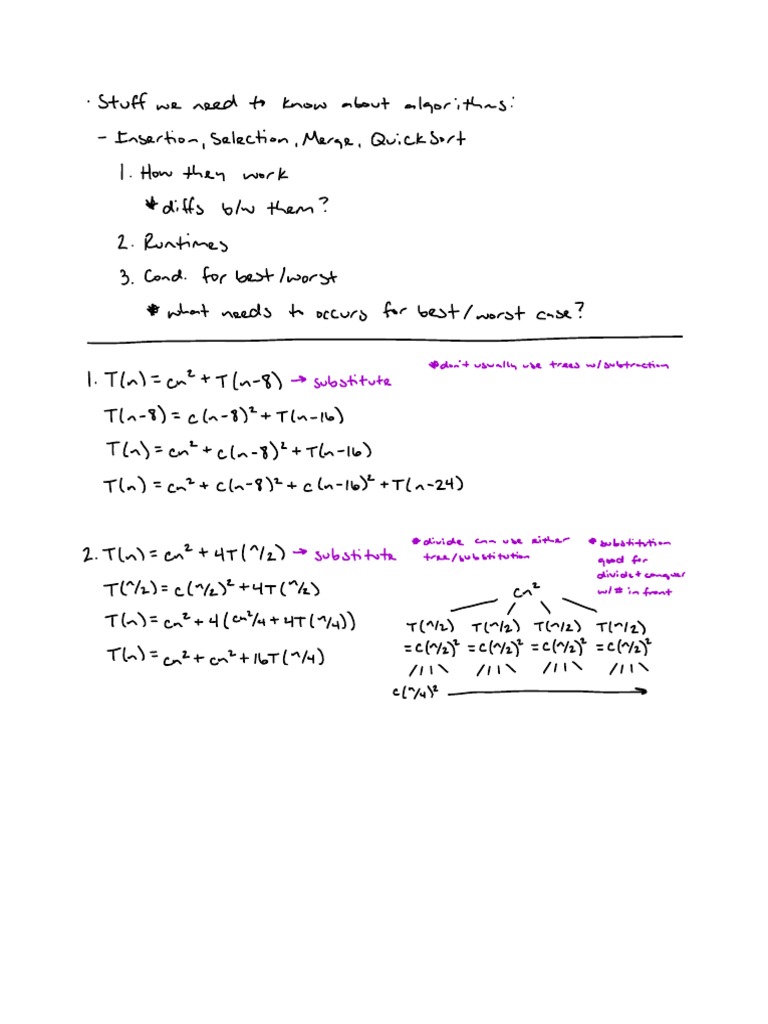 · Stuff we need to know about algorithms:
- Insertion, Selection, Merge, QuickSort
1. How they work
* diffs b/w them?
2. Runtimes
3. Cond. for best/worst
* what needs to occurs for best/worst case?
1. T(n) = cn² + T(n-8) → substitute
* don't usually use trees w/subtraction
T(n-8) = c(n-8)² + T(n-16)
T(n) = cn² + c(n-8)² + T(n-16)
T(n) = cn² + c(n-8)² + c(n-16)² + T(n-24)
2. T(n) = cn² + 4T(n/2) → substitute
T(n/2) = c(n/2)² + 4T(n/2)
T(n) = cn² + 4(cn²/4 + 4T(n/4))
T(n) = cn² + cn² + 16T(n/4)
* divide can use either
tree/substitution
* substitution
good for
divide+conquer
w/ # in front
cn²
T(n/2) T(n/2) T(n/2) T(n/2)
= c(n/2)² = c(n/2)² = c(n/2)² = c(n/2)²
c(n/4)²